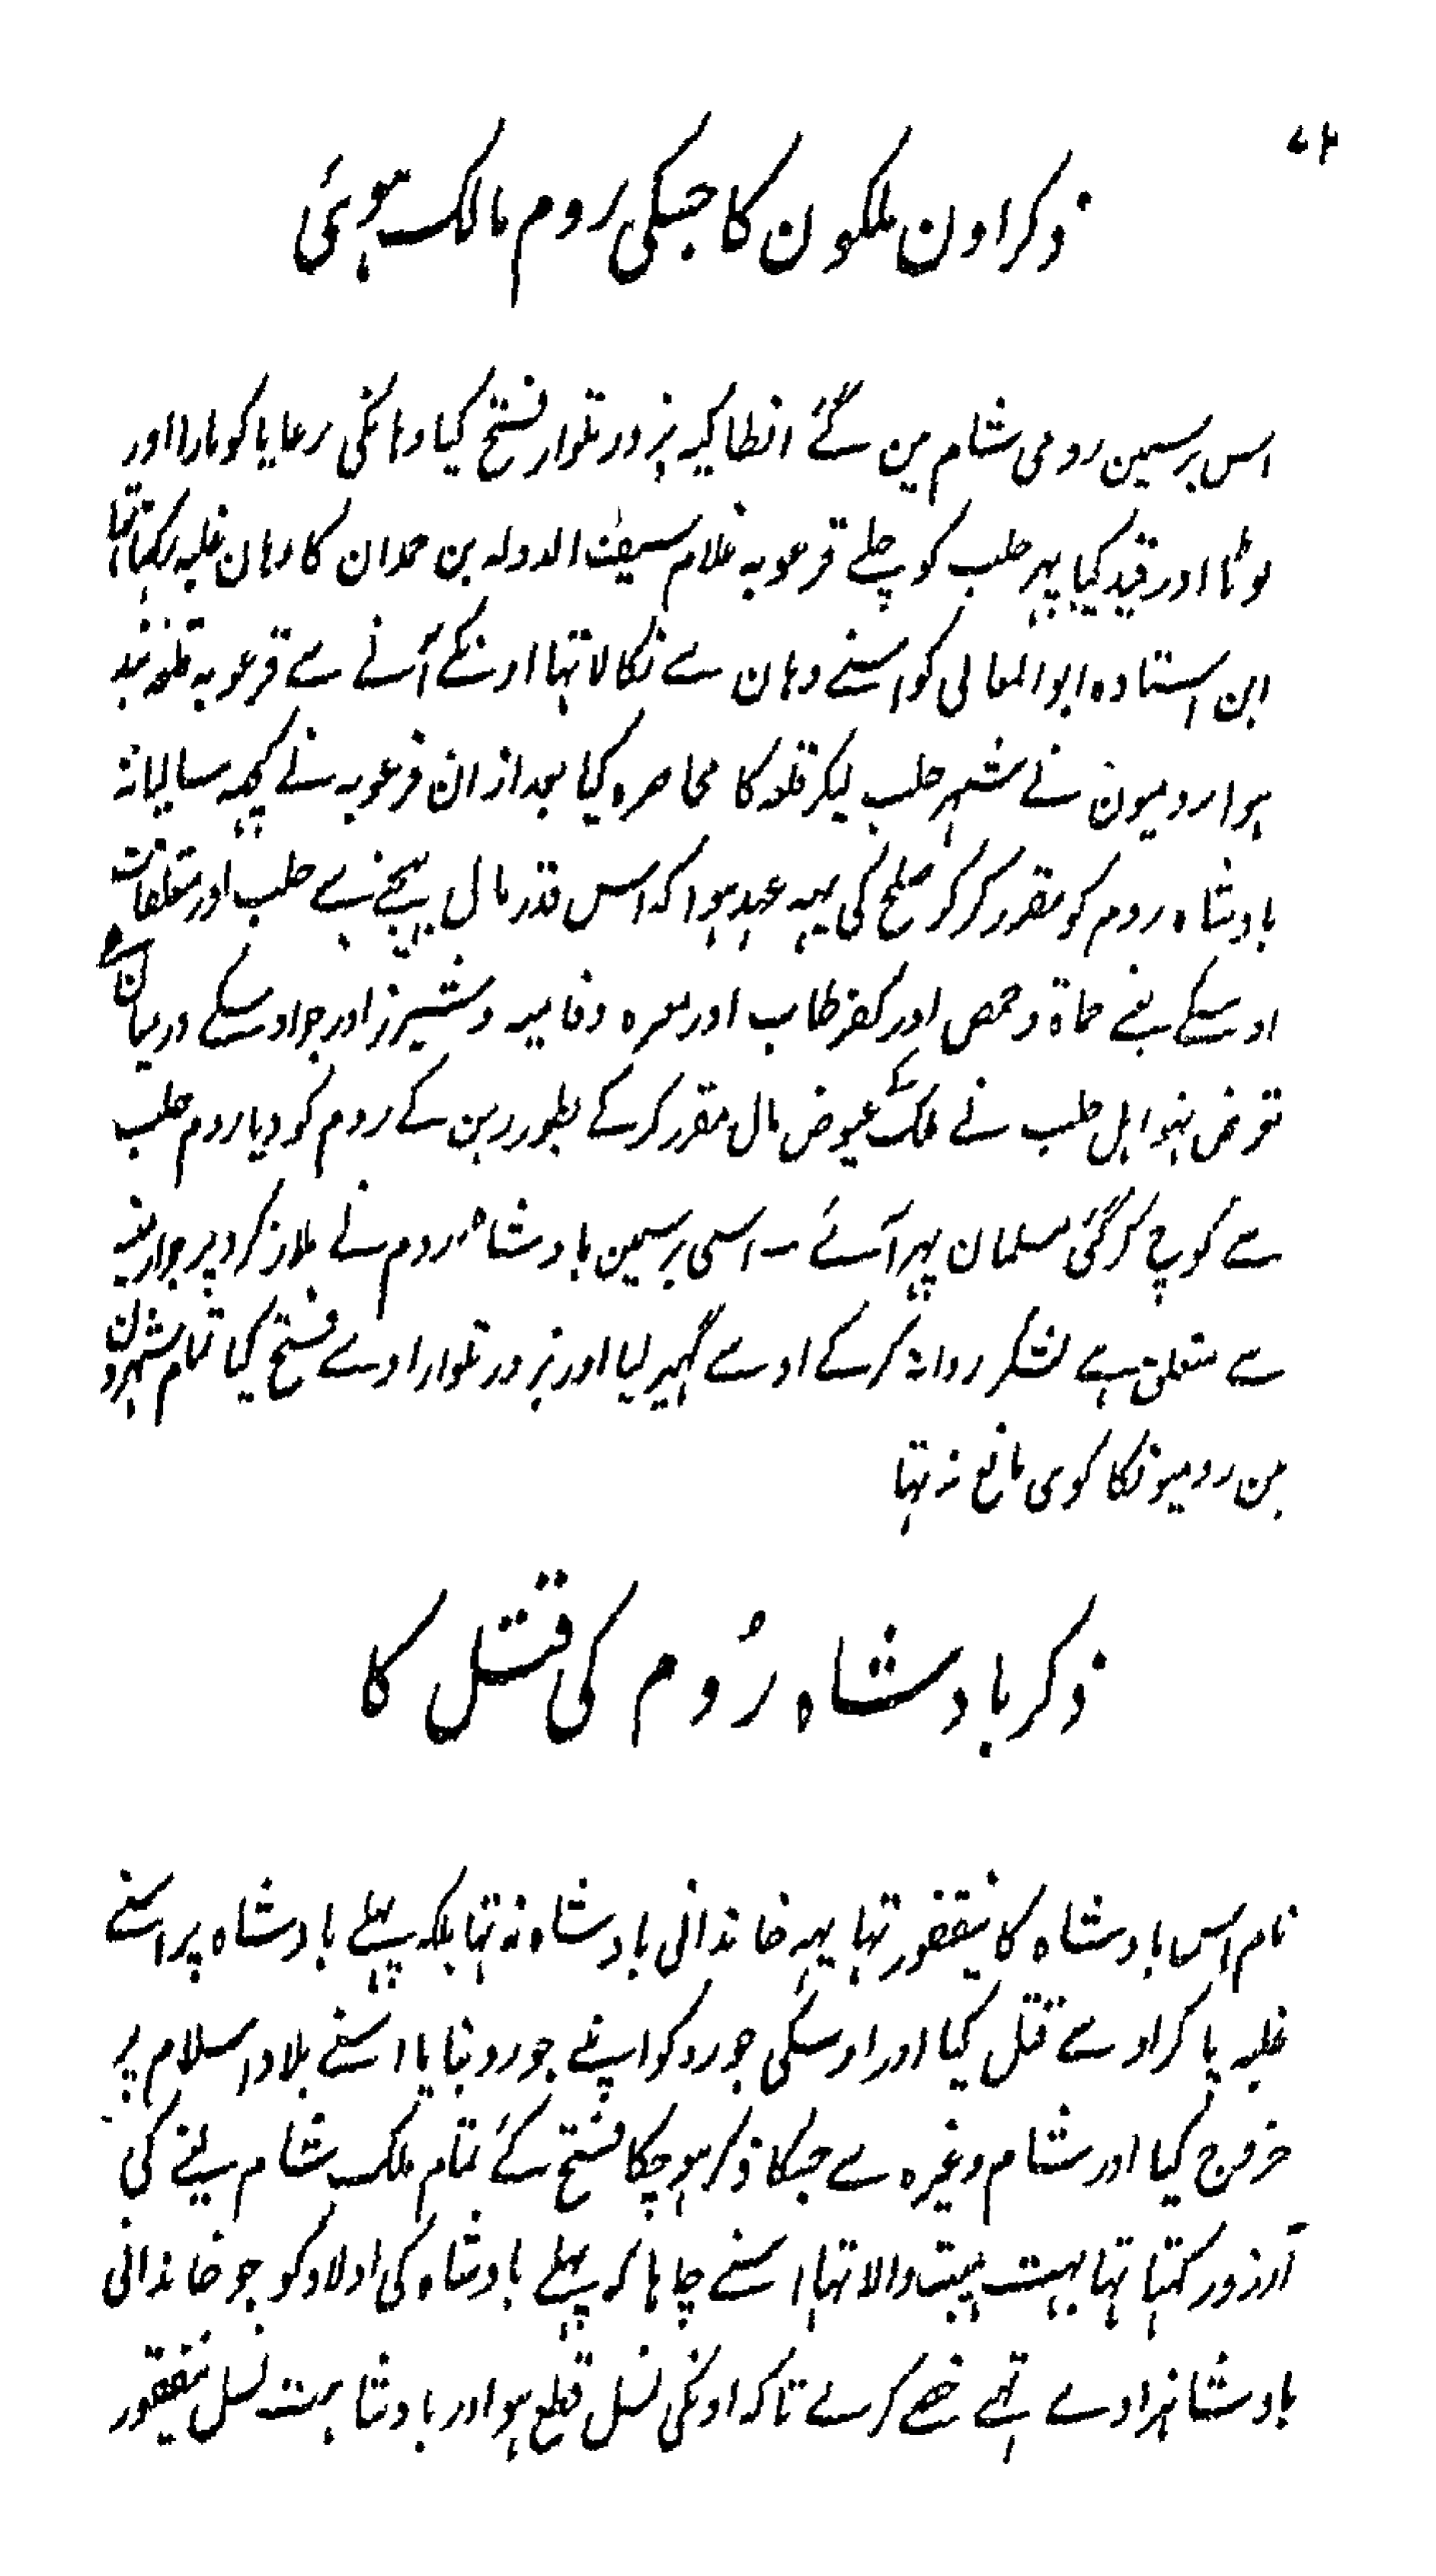 ۷۴
ذکر اون ملکون کا جسکی روم مالک ہوئی
اس برسمین رومی شام مین گئے انطاکیہ بزور تلوار فتح کیا وہانکی رعایا کو مارا اور
لوٹا اور قید کیا پہر حلب کو چلے قرعویہ غلام سیف الدولہ بن حمدان کا وہان غلبہ رکہتا تہا
ابن استادہ ابوالمعالی کو اسنے وہان سے نکالا تہا اونکے آنے سے قرعویہ قلعہ بند
ہوا رومیون نے شہر حلب لیکر قلعہ کا محاصرہ کیا بعد ازان قرعویہ نے کچہہ سالیانہ
بادشاہ روم کو مقرر کر کر صلح کی یہہ عہد ہوا کہ اس قدر مال بہیجنے سے حلب اور متعلقات
اوسکے یعنے حماۃ و حمص اور کفرطاب اور معرہ وفامیہ و شیرز اور جو اوسکے درمیان ہے
تعرض نہو اہل حلب نے ملک عیوض مال مقرر کرکے بطور رہن کے روم کو دیا روم حلب
سے کوچ کر گئی مسلمان پہر آئے ـ اسی برسمین بادشاہ روم نے ملازکرد پر جو ارمینیہ
سے متعلق ہے لشکر روانہ کرکے اوسے گہیر لیا اور بزور تلوار اوسے فتح کیا تمام شہرون
مین رومیونکا کوی مانع نہ تہا
ذکر بادشاہ رُوم کی قتل کا
نام اس بادشاہ کا نیقفور تہا یہہ خاندانی بادشاہ نہ تہا بلکہ پہلے بادشاہ پر اسنے
غلبہ پا کر اوسے قتل کیا اور اوسکی جورو کو اپنے جورو بنایا اسنے بلاد اسلام پر
خروج کیا اور شام وغیرہ سے جسکا ذکر ہو چکا فتح کئے تمام ملک شام لینے کی
آرزو رکہتا تہا بہت ہیبت والا تہا اسنے چاہا کہ پہلے بادشاہ کی اولاد کو جو خاندانی
بادشاہزادے تہے خصے کرلے تاکہ اونکی نسل قطع ہو اور بادشاہت نسل نیقفور